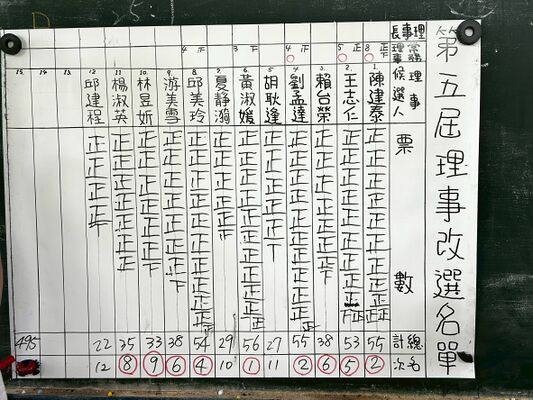 第五屆理事改選名單
理事長
常務理事
理事候選人
票數
總計
名次
8 正下
1. 陳建泰
正正正正正正正正正正正
55
2
5 正
2. 王志仁
正正正正正正正正正正下
53
5
3. 賴台榮
正正正正正正正下
38
6
4
4. 劉孟達
正正正正正正正正正正正
55
2
5. 胡耿達
正正正正正丅
27
11
3 下
6. 黃淑媛
正正正正正正正正正正正一
56
1
7. 夏靜溺
29
10
4
8. 邱美玲
54
4
9. 游美雪
正正正正正正正下
38
6
10. 林昱妡
正正正正正正下
33
9
11. 楊淑英
正正正正正正正
35
8
12. 邱建程
正正正正丅
22
12
13.
14.
15.
495